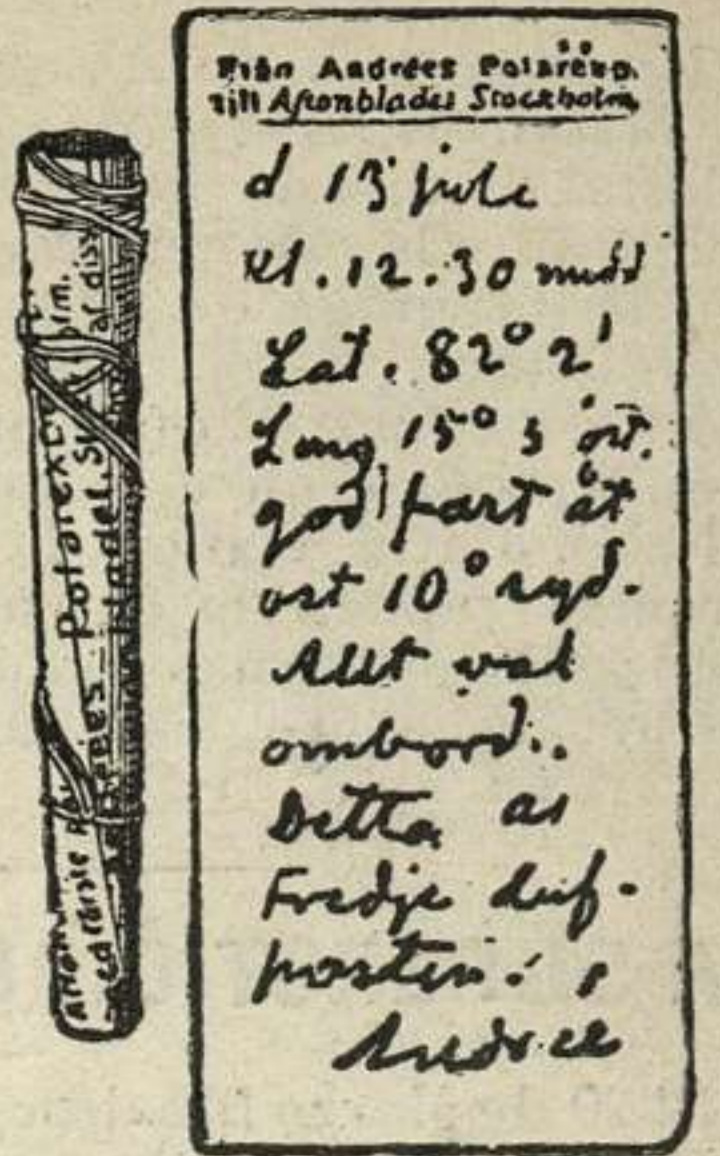 Från Andrées Polarexp.
till Aftonbladet Stockholm
d 13 juli
kl. 12.30 midd
Lat. 82° 2'
Long 15° 5 öst.
god fart åt
ost 10° syd.
Allt väl
ombord.
Detta är
Tredje duf-
posten.
Andrée
Polarexp